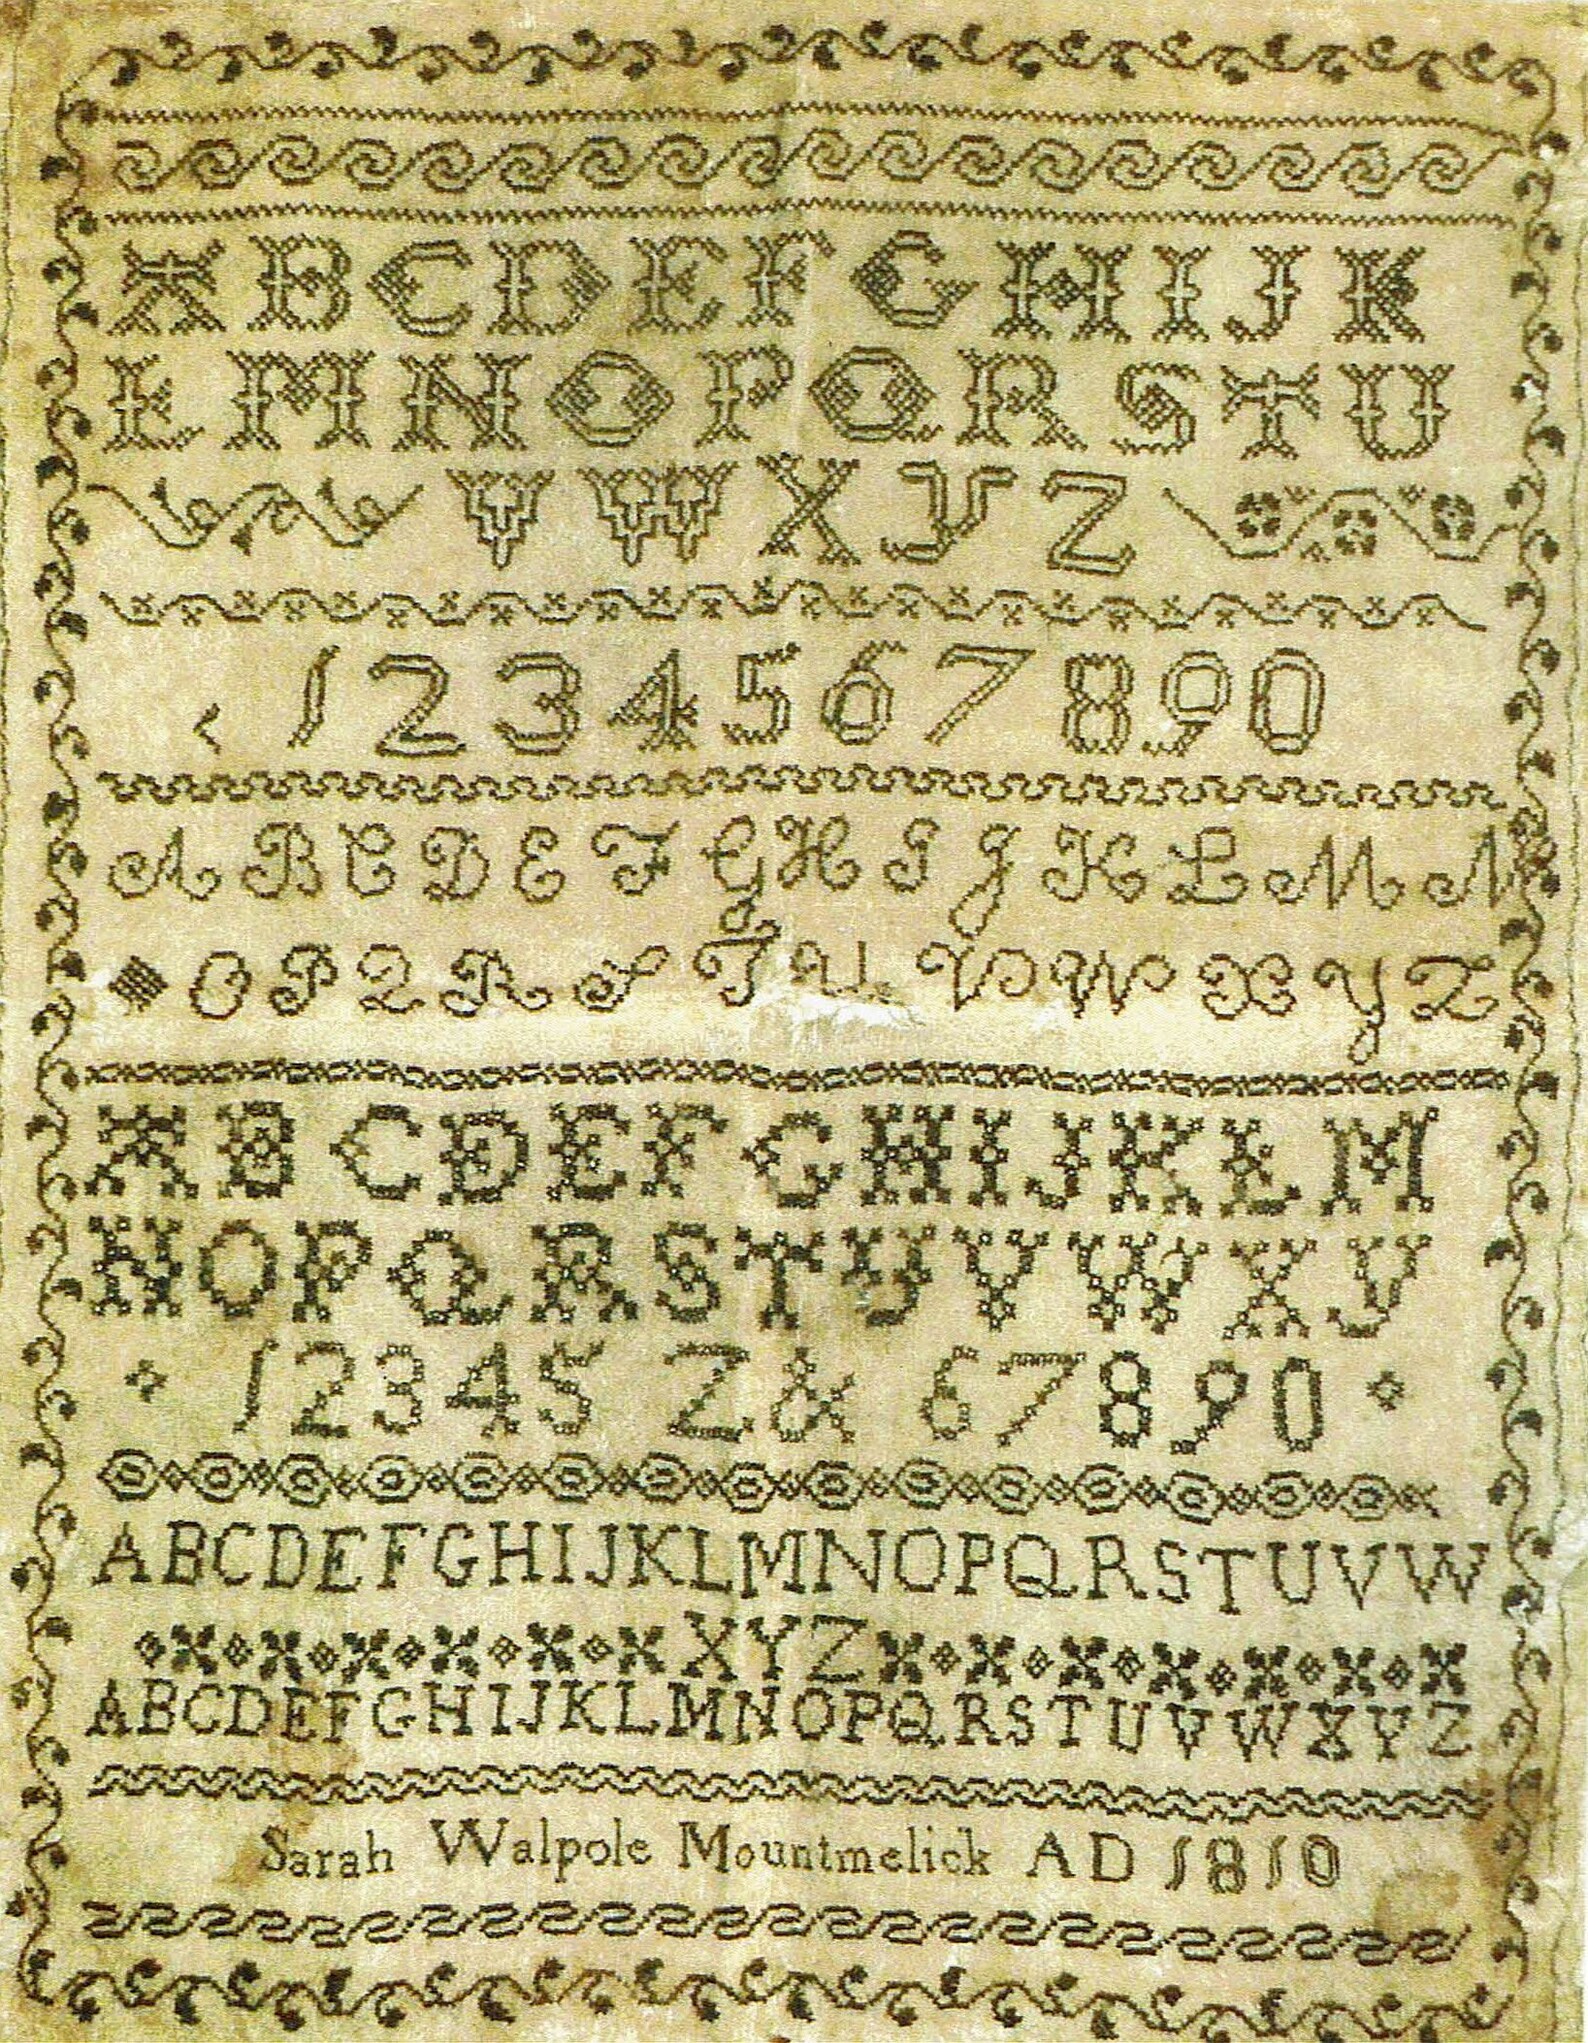 A B C D E F G H I J K
L M N O P Q R S T U
V W X Y Z
1 2 3 4 5 6 7 8 9 0
A B C D E F G H I J K L M N
O P Q R S T U V W X Y Z
A B C D E F G H I J K L M
N O P Q R S T U V W X Y
1 2 3 4 5 Z & 6 7 8 9 0
A B C D E F G H I J K L M N O P Q R S T U V W
X Y Z
A B C D E F G H I J K L M N O P Q R S T U V W X Y Z
Sarah Walpole Mountmelick AD 1810